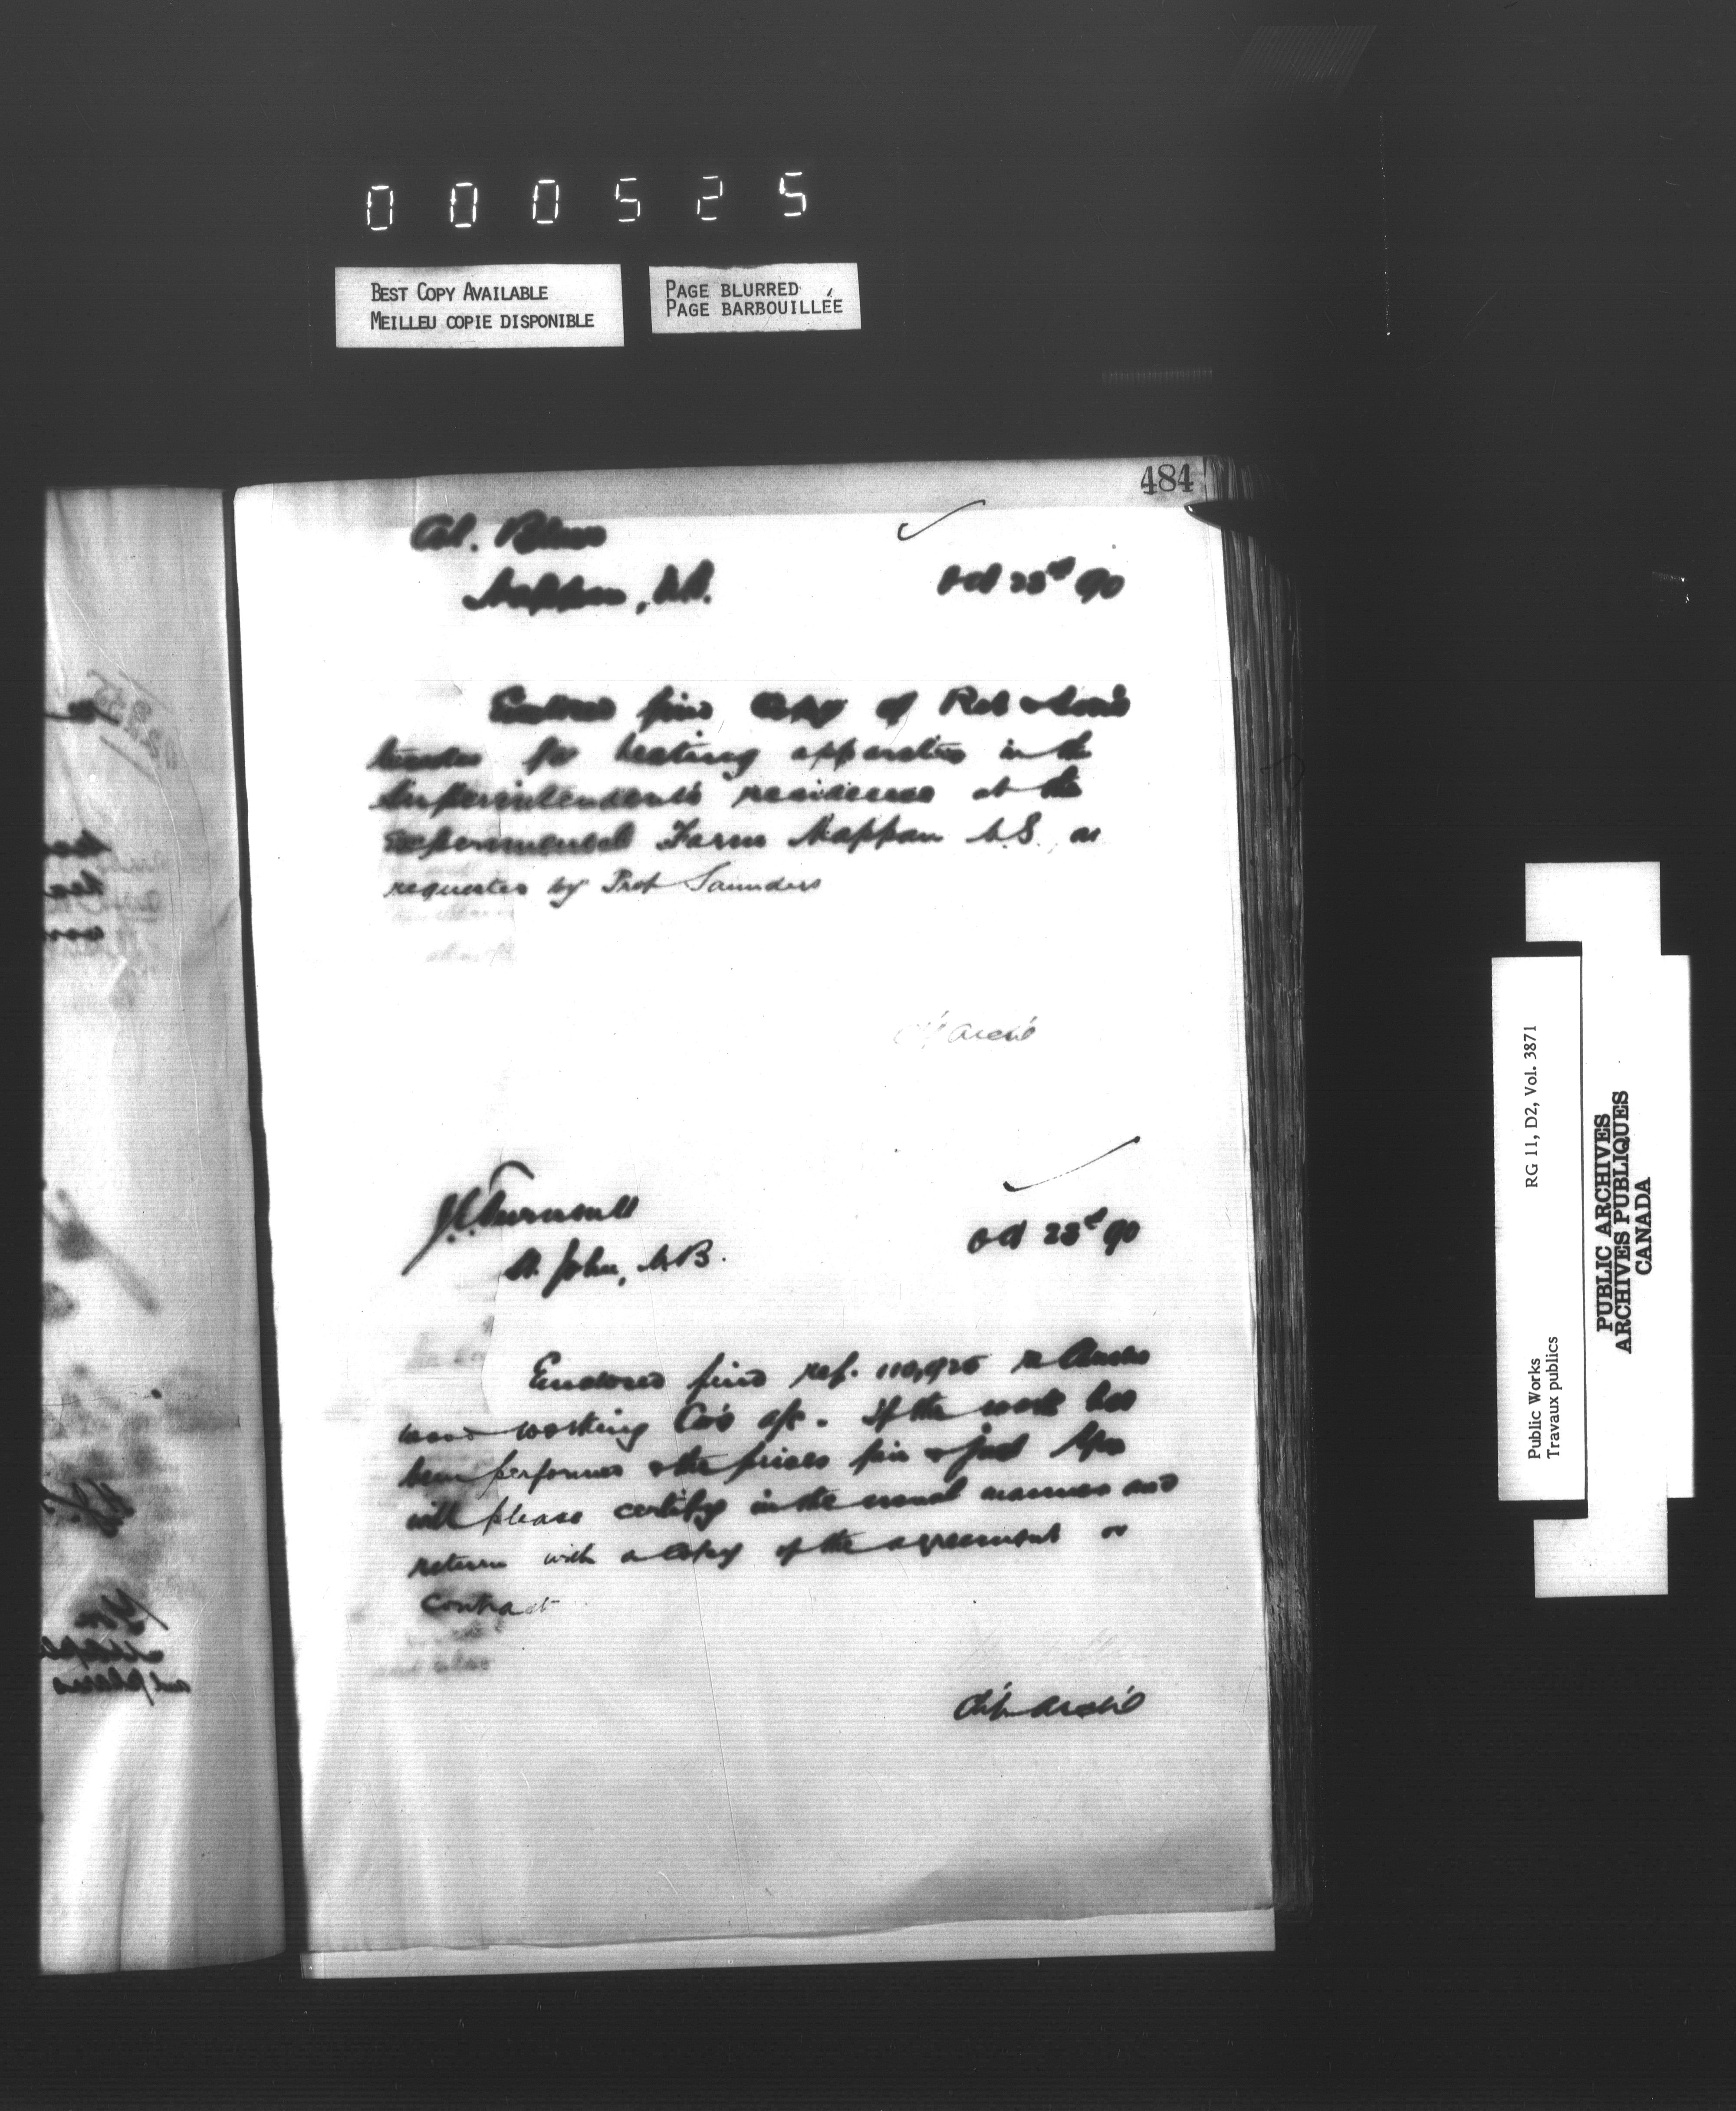 000525
BEST COPY AVAILABLE
MEILLEU COPIE DISPONIBLE
PAGE BLURRED
PAGE BARBOUILLÉE
484
Col. Blair
Nappan, N.S.
Oct 23rd 90
Enclosed find Copy of Rob & Sons
tender for heating apparatus in the
Superintendent's residence at the
Experimental Farm Nappan N.S., as
requested by Prof Saunders
Ch. Archt
St. John, N.B.
Oct 23rd 90
Enclosed find ref. 110,925 re
wood working Co's a/c. If the work has
been performed & the prices fair & just you
will please certify in the usual manner and
return with a Copy of the agreement or
Contract
Ch. Archt
Public Works
Travaux publics
RG 11, D2, Vol. 3871
PUBLIC ARCHIVES
ARCHIVES PUBLIQUES
CANADA